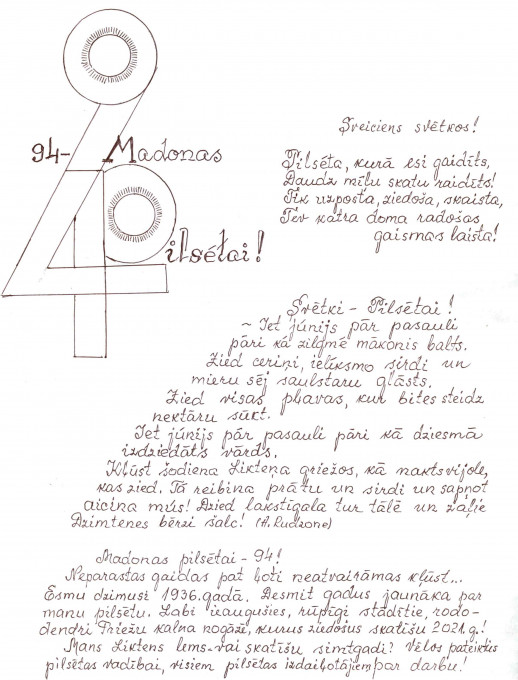 94- Madonas
Pilsētai!
Sveiciens svētkos!
Pilsēta, kurā esi gaidīts,
Daudz mīļu skatu raidīts!
Tik uzposta, ziedoša, skaista,
Tev katra doma radošas
gaismas laista!
Svētki - Pilsētai!
~ Iet jūnijs pār pasauli
pāri kā zilgmē mākonis balts.
Zied ceriņi, ielīksmo sirdi un
mieru sēj saulstaru glāsts.
Zied visas pļavas, kur bites steidz
nektāru sūkt.
Iet jūnijs pār pasauli pāri kā dziesmā
izdziedāts vārds.
Kļūst šodiena Likteņa griežos, kā naktsvijole,
kas zied. Tā reibina prātu un sirdi un sapņot
aicina mūs! Dzied lakstīgala tur tālē un zaļie
Dzimtenes bērzi šalc! (A. Rudzone)
Madonas pilsētai - 94!
Neparastas gaidas pat ļoti neatvairāmas kļūst...
Esmu dzimusi 1936. gadā. Desmit gadus jaunāka par
manu pilsētu. Labi izaugušies, rūpīgi stādītie, rodo-
dendri Priežu kalna nogāzē, kurus ziedošus skatīšu 2021. g.!
Mans Liktens lems - vai skatīšu simtgadi? Vēlos pateikties
pilsētas vadībai, visiem pilsētas izdaiļotājiem par darbu!